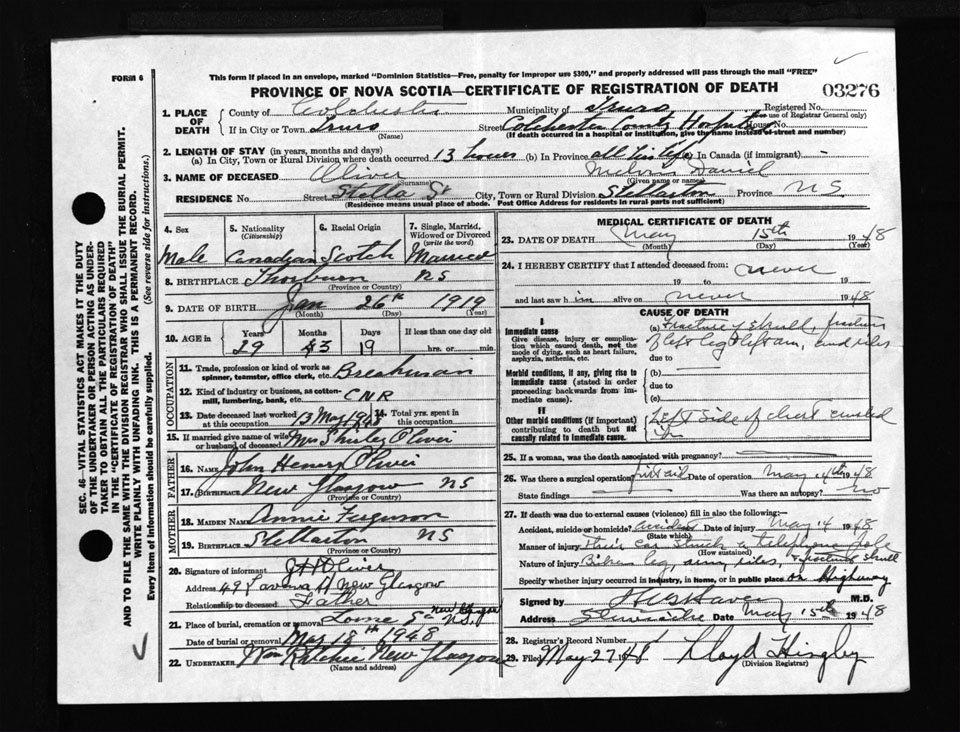 FORM 6
This form if placed in an envelope, marked "Dominion Statistics—Free, penalty for improper use $300," and properly addressed will pass through the mail "FREE"
PROVINCE OF NOVA SCOTIA—CERTIFICATE OF REGISTRATION OF DEATH
03276
1. PLACE OF DEATH
County of Colchester Municipality of Truro Registered No.
(For use of Registrar General only)
If in City or Town Truro Street Colchester County Hospital House No.
(Name) (If death occurred in hospital or institution, give the name instead of street and number)
2. LENGTH OF STAY (in years, months and days)
(a) In City, Town or Rural Division where death occurred 13 hours (b) In Province all his life In Canada (if immigrant) -
3. NAME OF DECEASED Oliver Melvin Daniel
Surname (Given name or names)
RESIDENCE No. Street Stella St City, Town or Rural Division Stellarton Province NS
(Residence means usual place of abode. Post Office Address for residents in rural parts not sufficient)
4. Sex 5. Nationality (Citizenship) 6. Racial Origin 7. Single, Married, Widowed or Divorced (write the word)
Male Canadian Scotch Married
8. BIRTHPLACE Thorburn NS
(Province or Country)
9. DATE OF BIRTH Jan 26th 1919
(Month) (Day) (Year)
10. AGE in Years Months Days If less than one day old
29 3 19 hrs. or min.
OCCUPATION
11. Trade, profession or kind of work as spinner, teamster, office clerk, etc. Breakman
12. Kind of industry or business, as cotton-mill, lumbering, bank, etc. CNR
13. Date deceased last worked at this occupation 13 May 1948 14. Total yrs. spent in this occupation
15. If married give name of wife or husband of deceased Mrs Shirley Oliver
FATHER
16. Name John Henry Oliver
17. Birthplace New Glasgow NS
(Province or Country)
MOTHER
18. MAIDEN NAME Annie Ferguson
19. BIRTHPLACE Stellarton NS
(Province or Country)
20. Signature of informant J H Oliver
Address 49 New Glasgow
Relationship to deceased Father
21. Place of burial, cremation or removal Lorne St New Glasgow NS.
Date of burial or removal May 18th 1948
22. UNDERTAKER Wm Ritchie New Glasgow
(Name and address)
MEDICAL CERTIFICATE OF DEATH
23. DATE OF DEATH May 15th 1948
(Month) (Day) (Year)
24. I HEREBY CERTIFY that I attended deceased from: never
19 to 19
and last saw him alive on never 1948
CAUSE OF DEATH
I
Immediate cause
Give disease, injury or complication which caused death, not the mode of dying, such as heart failure, asphyxia, asthenia, etc.
(a) Fracture of skull, fracture
of left leg & left arm, and ribs
due to
Morbid conditions, if any, giving rise to immediate cause (stated in order proceeding backwards from immediate cause).
(b)
due to
(c)
II
Other morbid conditions (if important) contributing to death but not causally related to immediate cause.
Left side of chest crushed
in
25. If a woman, was the death associated with pregnancy?
26. Was there a surgical operation? Date of operation May 14th 1948
State findings Was there an autopsy? no
27. If death was due to external causes (violence) fill in also the following:
Accident, suicide or homicide? accident Date of injury May 14 1948
(State which)
Manner of injury Their car struck a telephone pole
(How sustained)
Nature of injury Broken leg, arm, ribs, & fracture skull
Specify whether injury occurred in Industry, in Home, or in public place on Highway
Signed by M.D.
Address Stewiacke Date May 15th 1948
28. Registrar's Record Number
29. Filed May 27 1948 Lloyd Hingley
(Division Registrar)
SEC. 46—VITAL STATISTICS ACT MAKES IT THE DUTY
OF THE UNDERTAKER OR PERSON ACTING AS UNDER-
TAKER TO OBTAIN ALL THE PARTICULARS REQUIRED
IN THE "CERTIFICATE OF REGISTRATION OF DEATH"
AND TO FILE THE SAME WITH THE DIVISION REGISTRAR WHO SHALL ISSUE THE BURIAL PERMIT.
WRITE PLAINLY WITH UNFADING INK. THIS IS A PERMANENT RECORD.
Every item of Information should be carefully supplied. (See reverse side for instructions.)